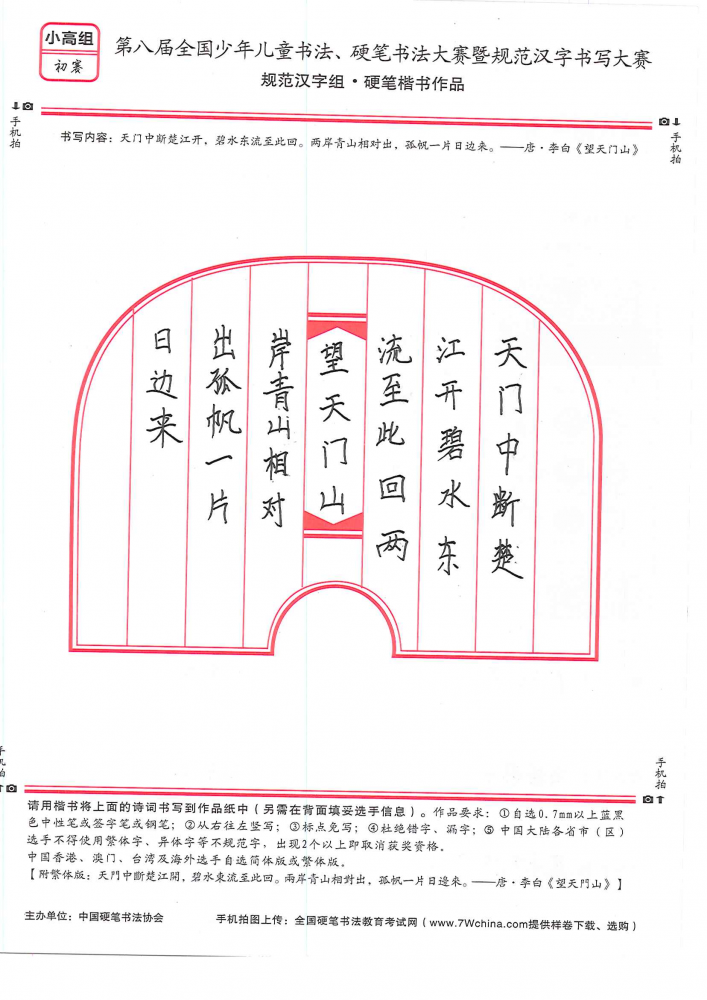 小高组
初赛
第八届全国少年儿童书法、硬笔书法大赛暨规范汉字书写大赛
规范汉字组·硬笔楷书作品
手机拍
手机拍
书写内容：天门中断楚江开，碧水东流至此回。两岸青山相对出，孤帆一片日边来。——唐·李白《望天门山》
天门中断楚
江开碧水东
流至此回两
望天门山
岸青山相对
出孤帆一片
日边来
手机拍
手机拍
请用楷书将上面的诗词书写到作品纸中（另需在背面填妥选手信息）。作品要求：①自选0.7mm以上蓝黑
色中性笔或签字笔或钢笔；②从右往左竖写；③标点免写；④杜绝错字、漏字；⑤ 中国大陆各省市（区）
选手不得使用繁体字、异体字等不规范字，出现2个以上即取消获奖资格。
中国香港、澳门、台湾及海外选手自选简体版或繁体版。
【附繁体版：天門中断楚江開，碧水東流至此回。兩岸青山相對出，孤帆一片日邊來。——唐·李白《望天門山》】
主办单位：中国硬笔书法协会
手机拍图上传：全国硬笔书法教育考试网（www.7Wchina.com提供样卷下载、选购）